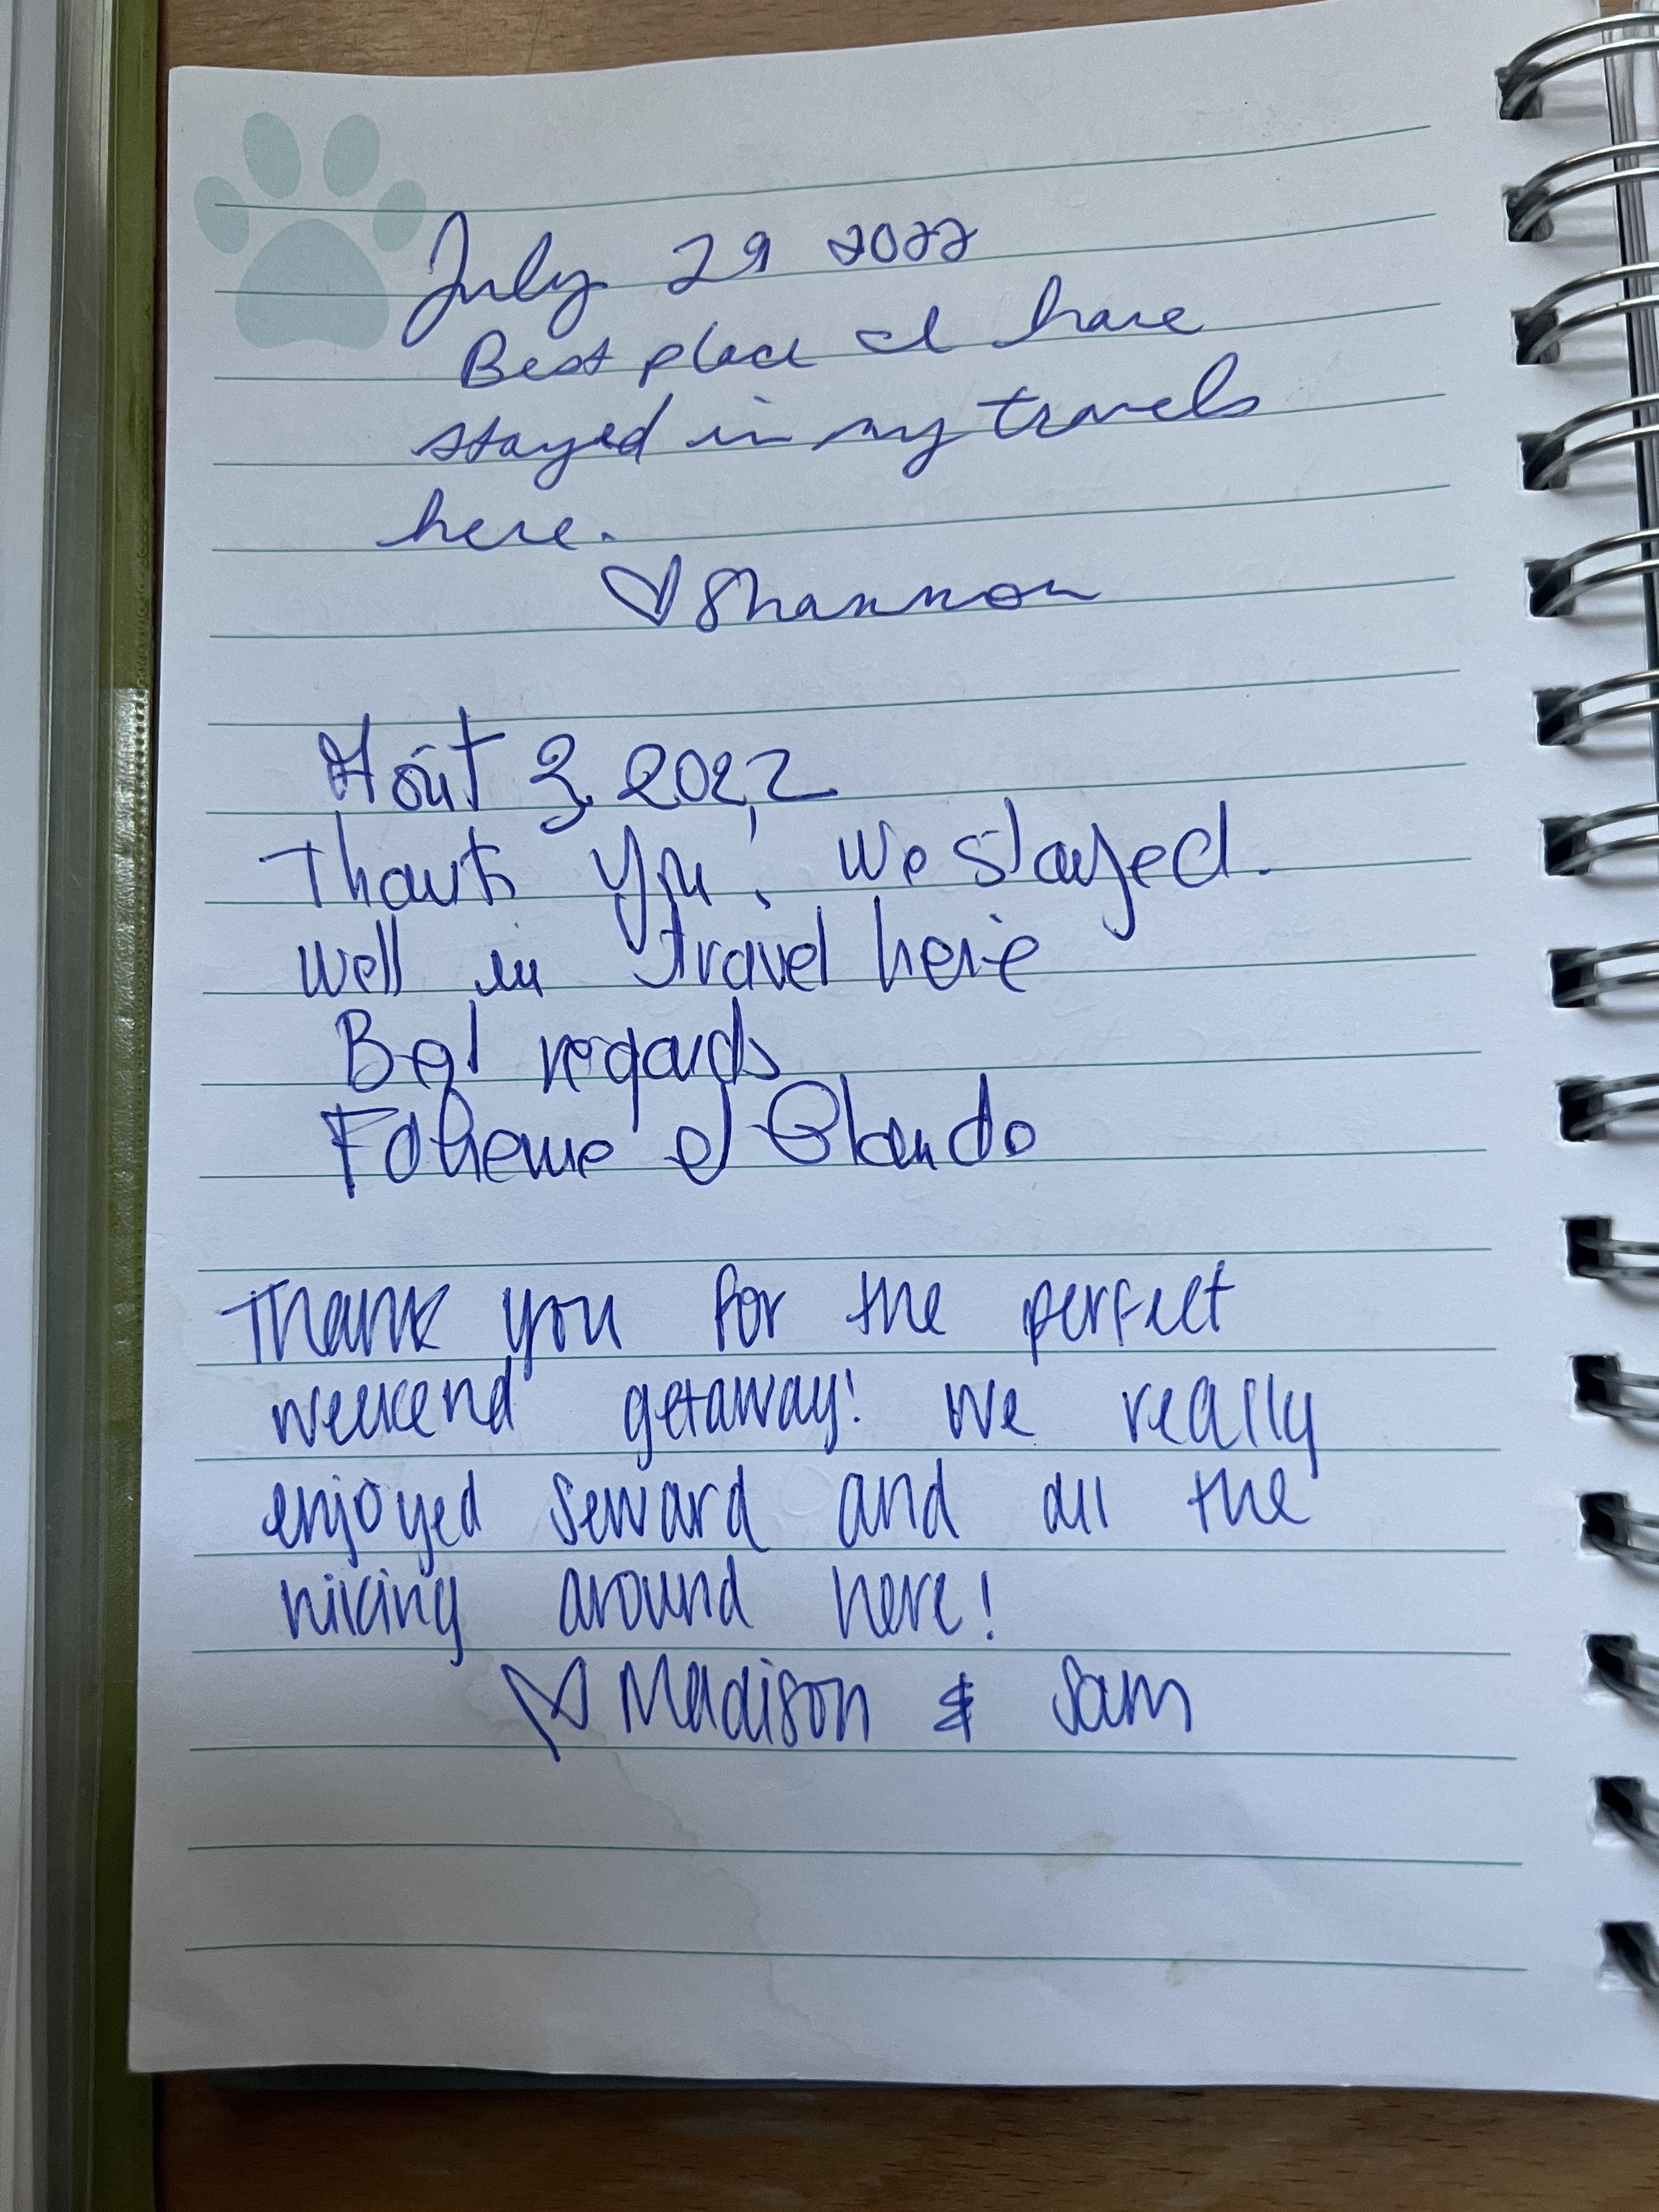 July 29 2022
Best place I have
stayed in my travels
here.
♡ Shannon
Août 3, 2022
Thanks you! We stayed.
Well in travel here
Best regards
Thank you for the perfect
weekend getaway! We really
enjoyed Seward and all the
hiking around here!
♡ Madison & Sam